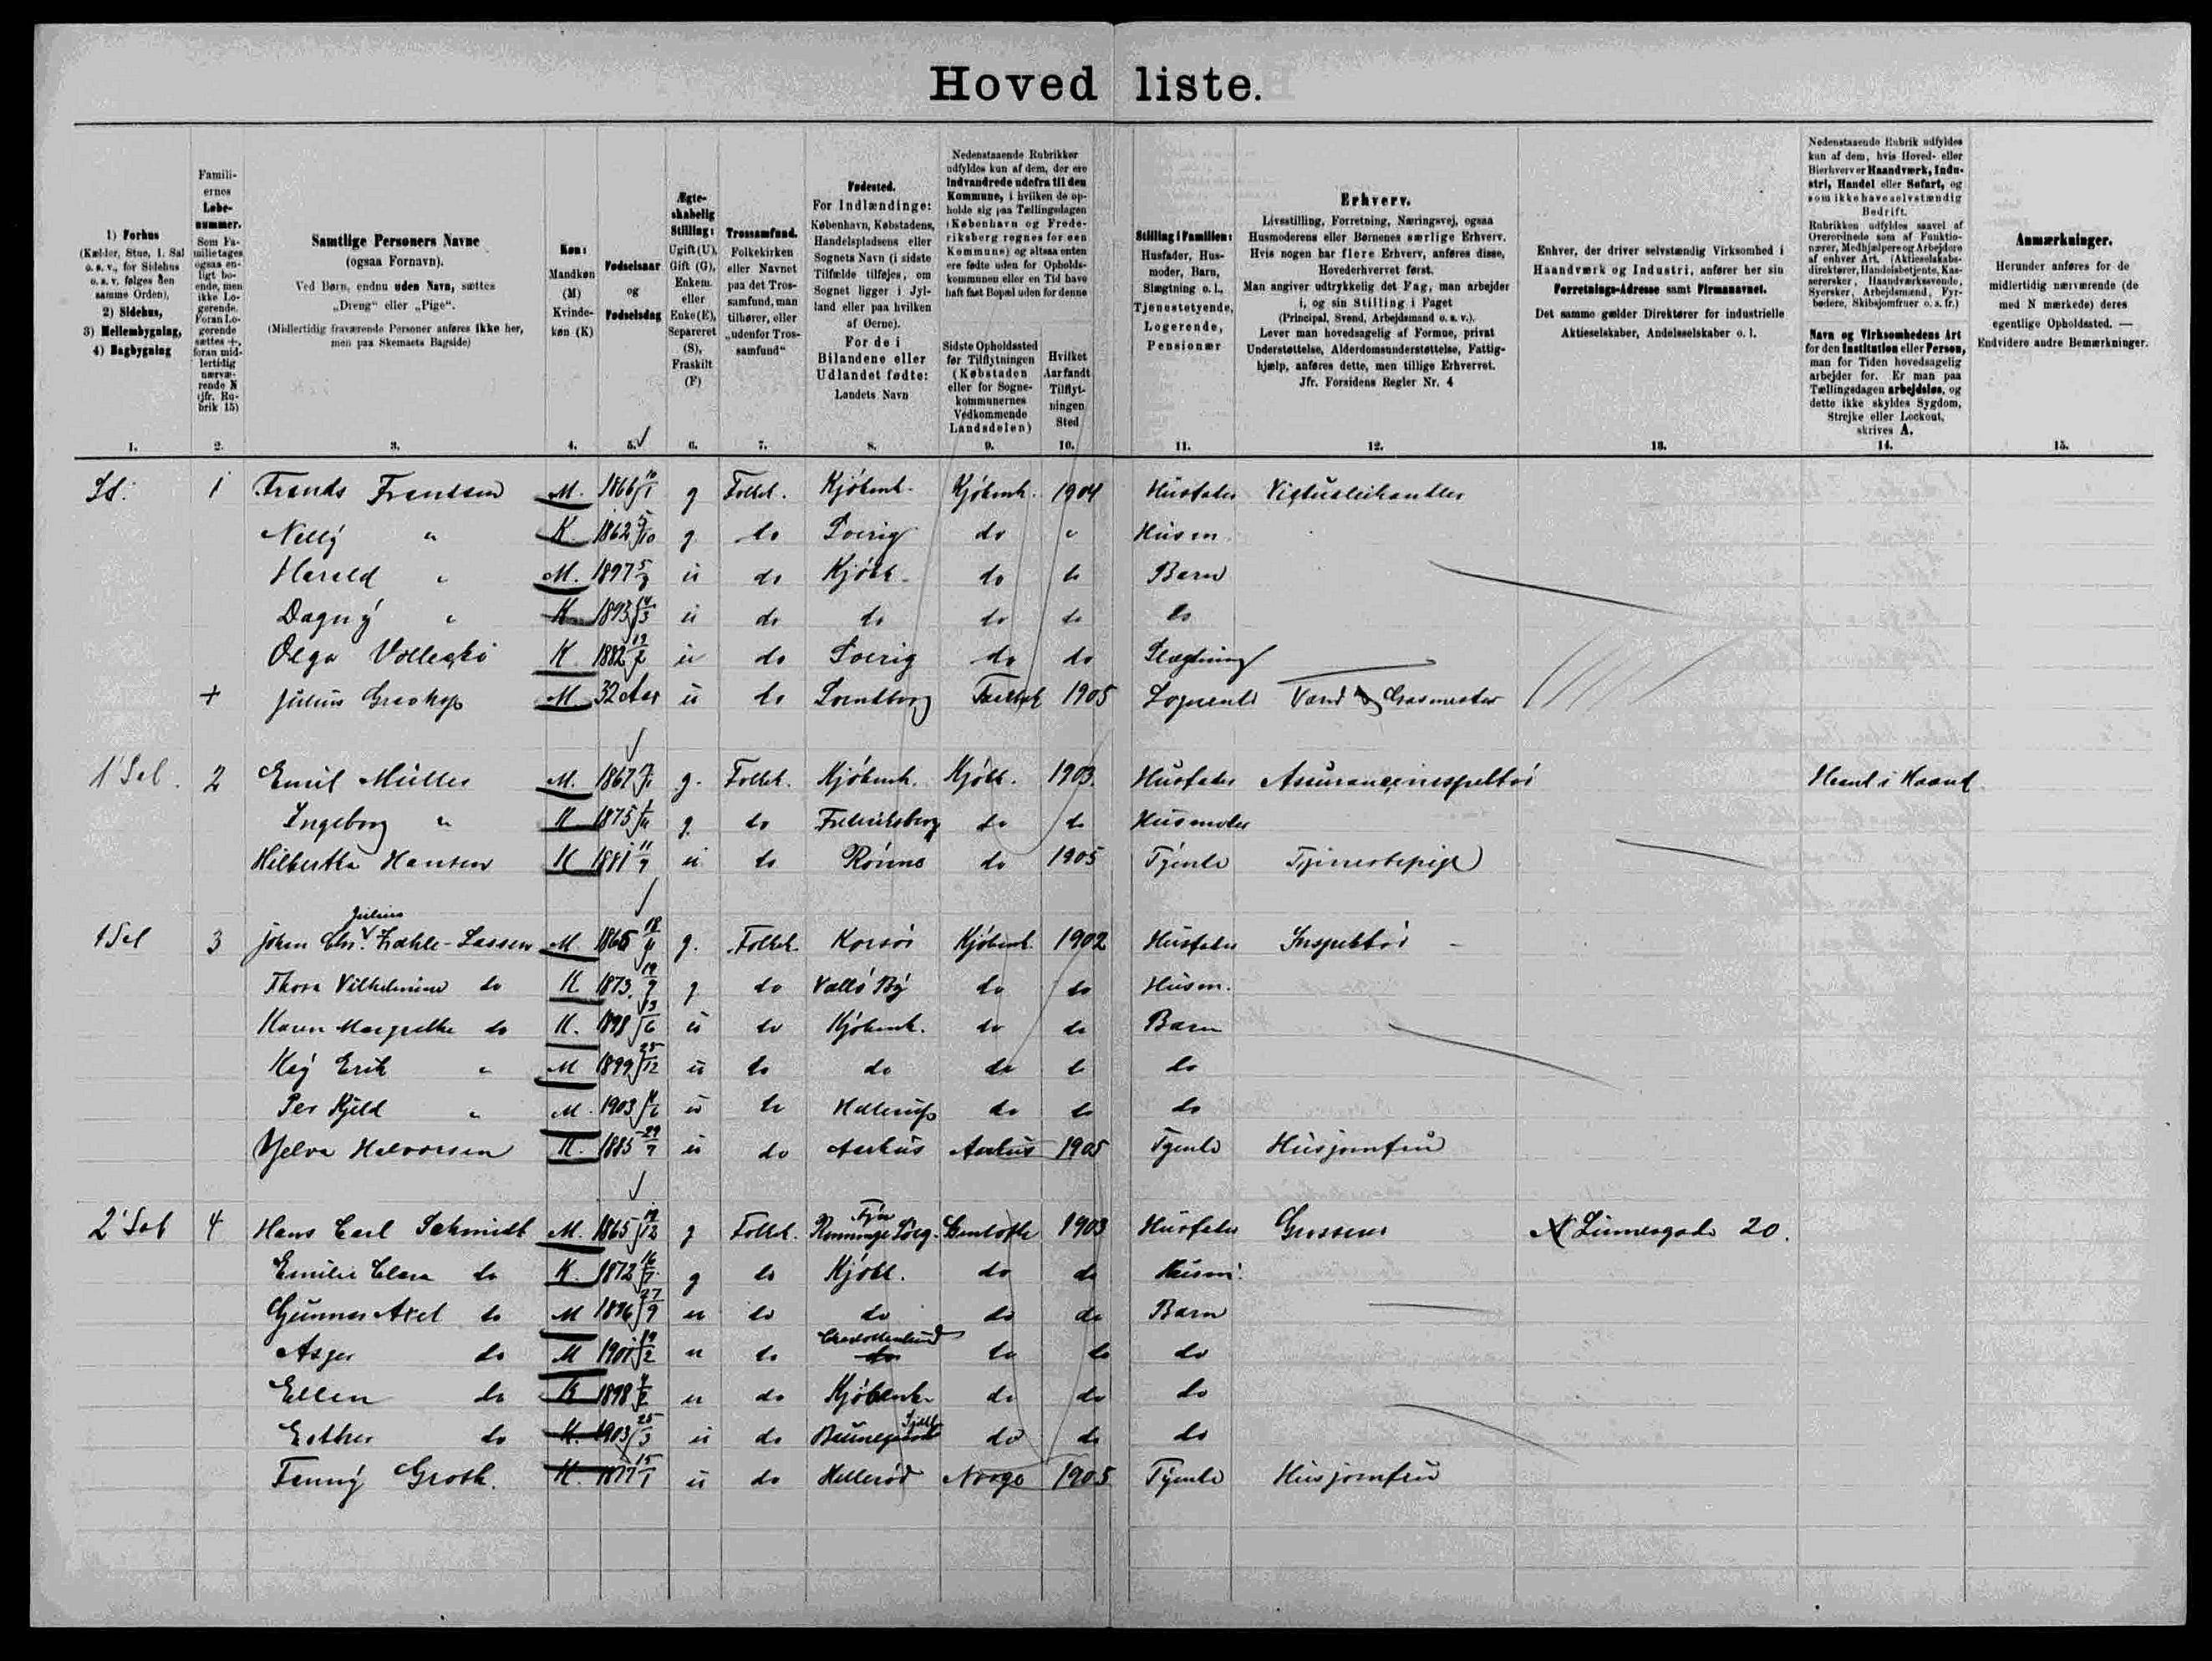 Hoved liste.
1) Forhus
(Kælder, Stue, 1. Sal
o. s. v., for Sidehus
o. s. v. følges den
samme Orden),
2) Sidehus,
3) Mellembygning,
4) Bagbygning
1.
Famili-
ernes
Løbe-
nummer.
Som Fa-
milie tages
ogsaa en-
ligt bo-
ende, men
ikke Lo-
gerende.
Foran Lo-
gerende
sættes +,
foran mid-
lertidig
nærvæ-
rende N
(jfr. Ru-
brik 15)
2.
Samtlige Personers Navne
(ogsaa Fornavn).
Ved Børn, endnu uden Navn, sættes
„Dreng“ eller „Pige“.
(Midlertidig fraværende Personer anføres ikke her,
men paa Skemaets Bagside)
3.
Køn:
Mandkøn
(M)
Kvinde-
køn (K)
4.
Fødselsaar
og
Fødselsdag
5.
Ægte-
skabelig
Stilling:
Ugift (U),
Gift (G),
Enkem.
eller
Enke (E),
Separeret
(S),
Fraskilt
(F)
6.
Trossamfund.
Folkekirken
eller Navnet
paa det Tros-
samfund, man
tilhører, eller
„udenfor Tros-
samfund“
7.
Fødested.
For Indlændinge:
København, Købstadens,
Handelspladsens eller
Sognets Navn (i sidste
Tilfælde tilføjes, om
Sognet ligger i Jyl-
land eller paa hvilken
af Øerne).
For de i
Bilandene eller
Udlandet fødte:
Landets Navn
8.
Nedenstaaende Rubrikker
udfyldes kun af dem, der ere
indvandrede udefra til den
Kommune, i hvilken de op-
holde sig paa Tællingsdagen
(København og Frede-
riksberg regnes for een
Kommune) og altsaa enten
ere fødte uden for Opholds-
kommunen eller en Tid have
haft fast Bopæl uden for denne
Sidste Opholdssted
før Tilflytningen
(Købstaden
eller for Sogne-
kommunernes
Vedkommende
Landsdelen)
9.
Hvilket
Aar fandt
Tilflyt-
ningen
Sted
10.
Stilling i Familien:
Husfader, Hus-
moder, Barn,
Slægtning o. l.,
Tjenestetyende,
Logerende,
Pensionær
11.
Erhverv.
Livsstilling, Forretning, Næringsvej, ogsaa
Husmoderens eller Børnenes særlige Erhverv.
Hvis nogen har flere Erhverv, anføres disse,
Hovederhvervet først.
Man angiver udtrykkelig det Fag, man arbejder
i, og sin Stilling i Faget
(Principal, Svend, Arbejdsmand o. s. v.).
Lever man hovedsagelig af Formue, privat
Understøttelse, Alderdomsunderstøttelse, Fattig-
hjælp, anføres dette, men tillige Erhvervet.
Jfr. Forsidens Regler Nr. 4
12.
Enhver, der driver selvstændig Virksomhed i
Haandværk og Industri, anfører her sin
Forretnings-Adresse samt Firmanavnet.
Det samme gælder Direktører for industrielle
Aktieselskaber, Andelsselskaber o. l.
13.
Nedenstaaende Rubrik udfyldes
kun af dem, hvis Hoved- eller
Bierhverv er Haandværk, Indu-
stri, Handel eller Søfart, og
som ikke have selvstændig
Bedrift.
Rubrikken udfyldes saavel af
Overordnede som af Funktio-
nærer, Medhjælpere og Arbejdere
af enhver Art. (Aktieselskabs-
direktører, Handelsbetjente, Kas-
serersker, Haandværkssvende,
Syersker, Arbejdsmænd, Fyr-
bødere, Skibsjomfruer o. s. fr.)
Navn og Virksomhedens Art
for den Institution eller Person,
man for Tiden hovedsagelig
arbejder for. Er man paa
Tællingsdagen arbejdsløs, og
dette ikke skyldes Sygdom,
Strejke eller Lockout,
skrives A.
14.
Anmærkninger.
Herunder anføres for de
midlertidig nærværende (de
med N mærkede) deres
egentlige Opholdssted. —
Endvidere andre Bemærkninger.
15.
St. 1 Frands Frandsen M. 1866 g Folkek. Kjöbenh. Kjöbenh. 1904 Husfader Victualiehandler
Nelly " K. 1862 5/10 g do Sverig do " Husm.
Harald " M. 1897 u do Kjöbh. do do Barn
Dagny " K 1893 u do do do do do
Olga K 1882 u do Sverig do do Slægtning
+ Julius M. 32 Aar u do Svendborg 1905 Logerende Vand & Gasmester
1' Sal. 2 Emil Müller M. 1867 g. Folkek. Kjöbenh. Kjöbh. 1903. Husfader Assuranceinspektör Haand i Haand
Ingeborg " K 1875 g. do Frederiksberg do do Husmoder
Hilbertha Hansen K 1881 11/9 u do Rönne do 1905 Tjende Tjenestepige
1 Sal 3 Johan Chr. Julius Zahle-Lassen M. 1865 g. Folkek Korsör Kjöbenh. 1902 Husfader Inspektör
Thora Vilhelmine do K 1873 19/9 g do Vallö By do do Husm.
Karen Margrethe do K. 1898 13/6 u do Kjöbenh. do do Barn
Kaj Erik " M 1899 25/12 u do do do do do
Per Kjeld " M. 1903 u do Hellerup do do do
Yelva Halvorsen K. 1885 29/9 u do Aarhus Aarhus 1905 Tyende Husjomfru
2' Sal 4 Hans Carl Schmidt M. 1865 g Folkek. Rönninge Sög. Fÿn Gentofte 1903 Husfader Grosserer N Linnesgade 20.
Emilie Clara do K. 1872 g do Kjöbh. do do Husm.
Gunnar Axel do M 1896 27/9 u do do do do Barn
Asger do M 1901 19/2 u do Charlottenlund do do do
Ellen do K 1898 u do Kjöbenh. do do do
Esther do K. 1903 25/3 u do Sjæll do do do
Fanny Groth. K. 1877 15/1 u do Norge 1905 Tyende Husjomfru